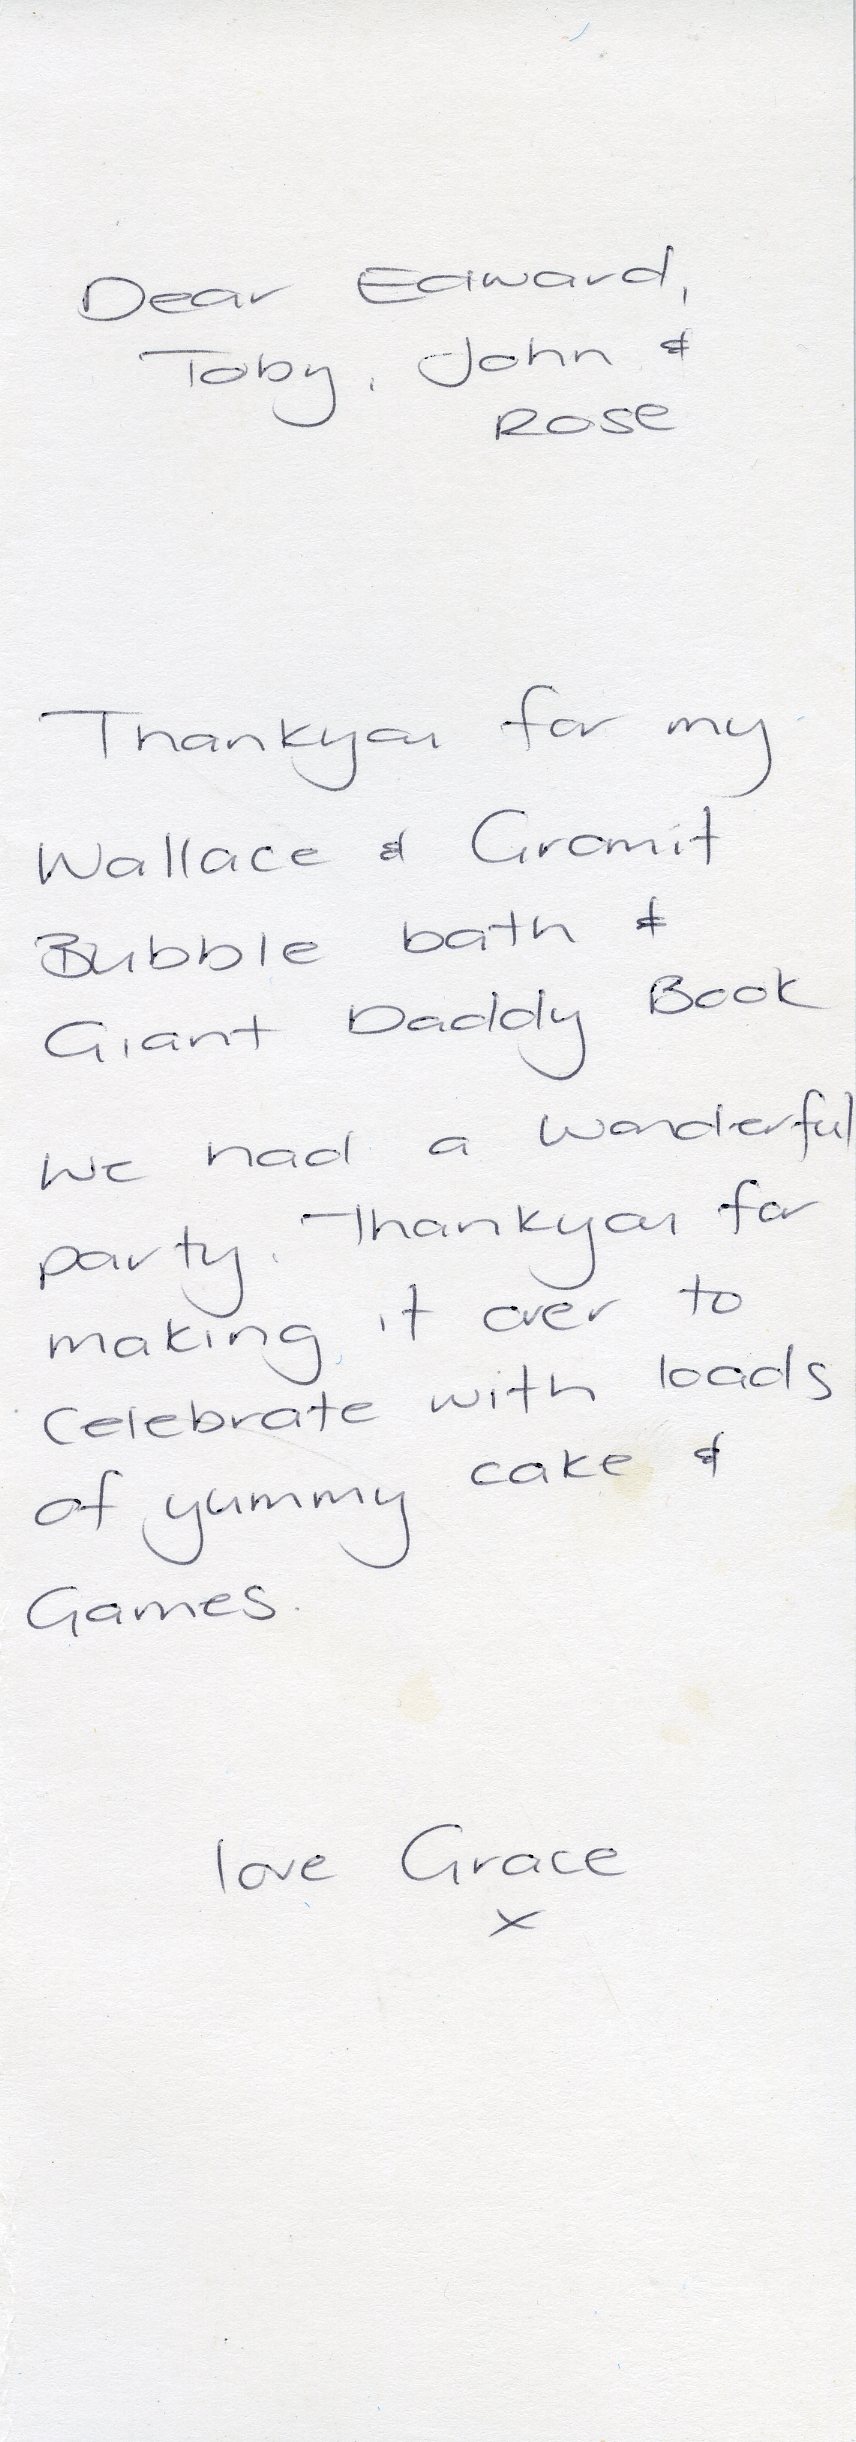 Dear Edward,
Toby, John &
Rose
Thankyou for my
Wallace & Gromit
Bubble bath &
Giant Daddy Book
We had a wonderful
party. Thankyou for
making it over to
celebrate with loads
of yummy cake &
Games.
love Grace
x